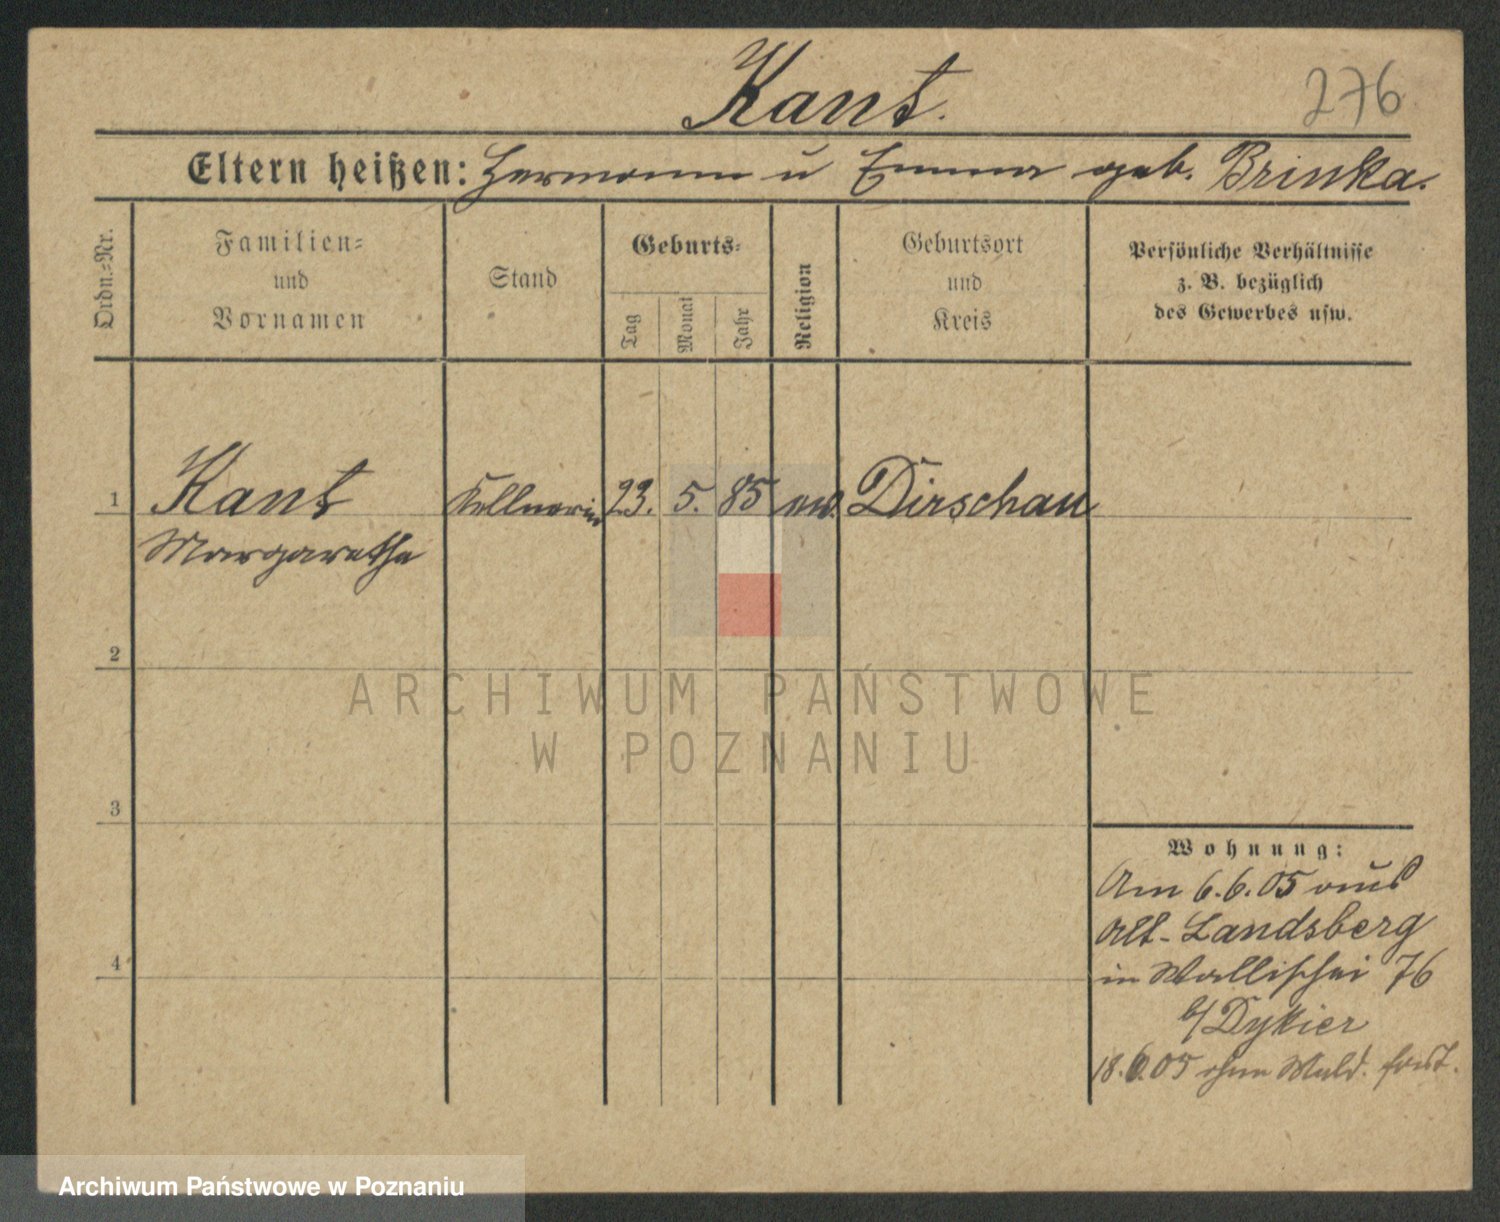 Kant.
276
Eltern heißen: Hermann u Emma geb. Brinka.
Ordn.=Nr.
Familien=
und
Vornamen
Stand
Geburts=
Tag
Monat
Jahr
Religion
Geburtsort
und
Kreis
Persönliche Verhältnisse
z. B. bezüglich
des Gewerbes usw.
1 Kant Kellnerin 23. 5. 85 ev. Dirschau
Margarethe
2
3
4
Wohnung:
Am 6.6.05 aus
Alt-Landsberg
in Wallischei 76
b/Dykier
18.6.05 ohne Meld. fort.
ARCHIWUM PAŃSTWOWE
W POZNANIU
Archiwum Państwowe w Poznaniu